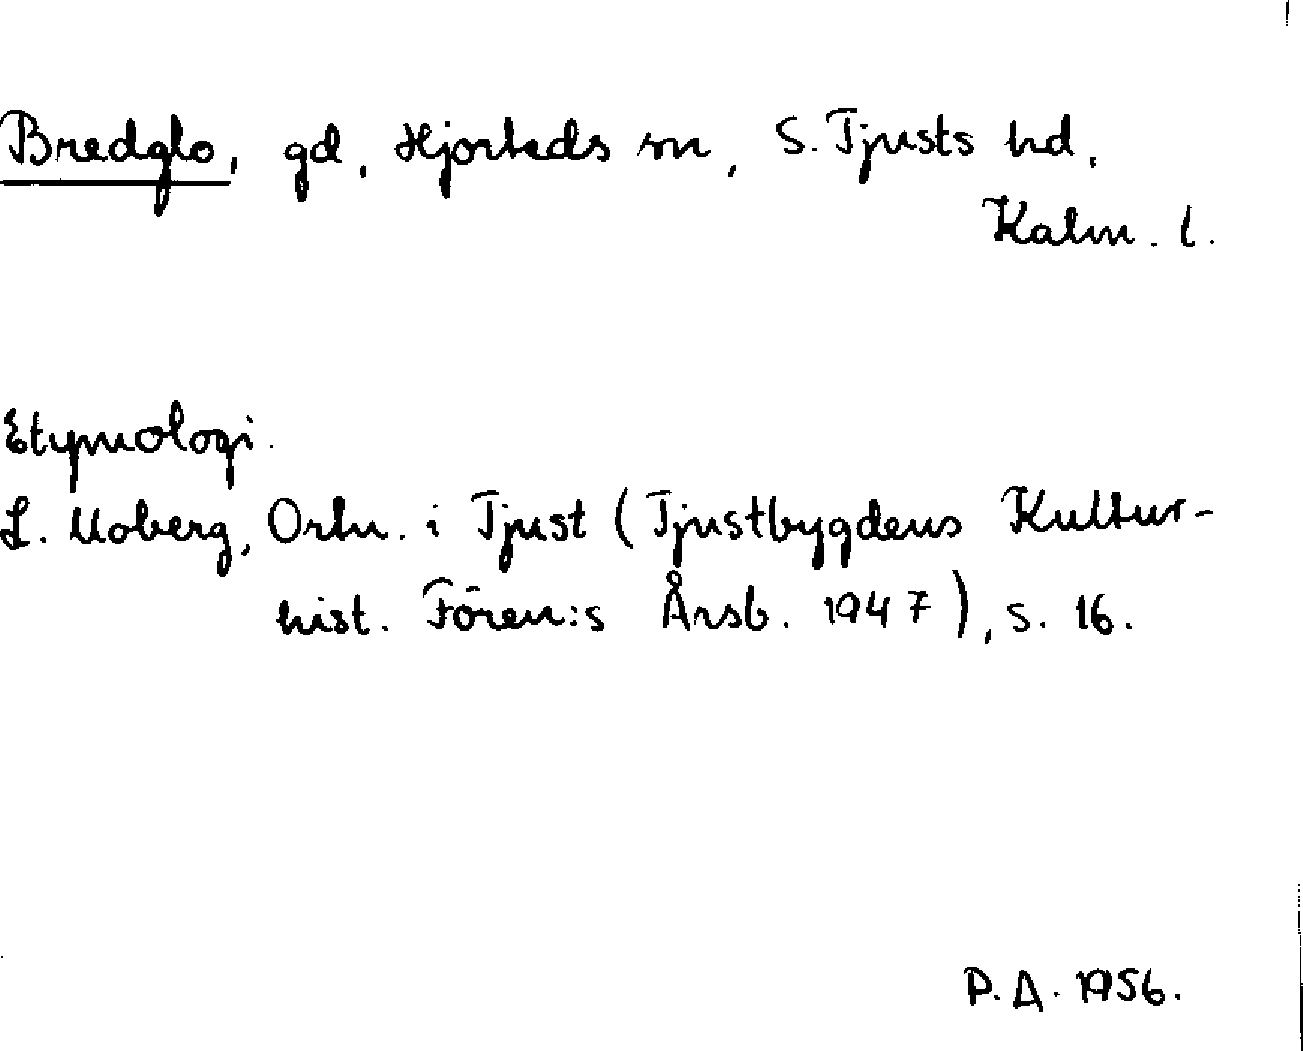 Bredglo, gd, Hjorteds sn, S. Tjusts hd,
Kalm. l.
Etymologi.
L. Moberg, Ortn. i Tjust (Tjustbygdens Kultur-
hist. Fören:s Årsb. 1947), s. 16.
P.A. 1956.